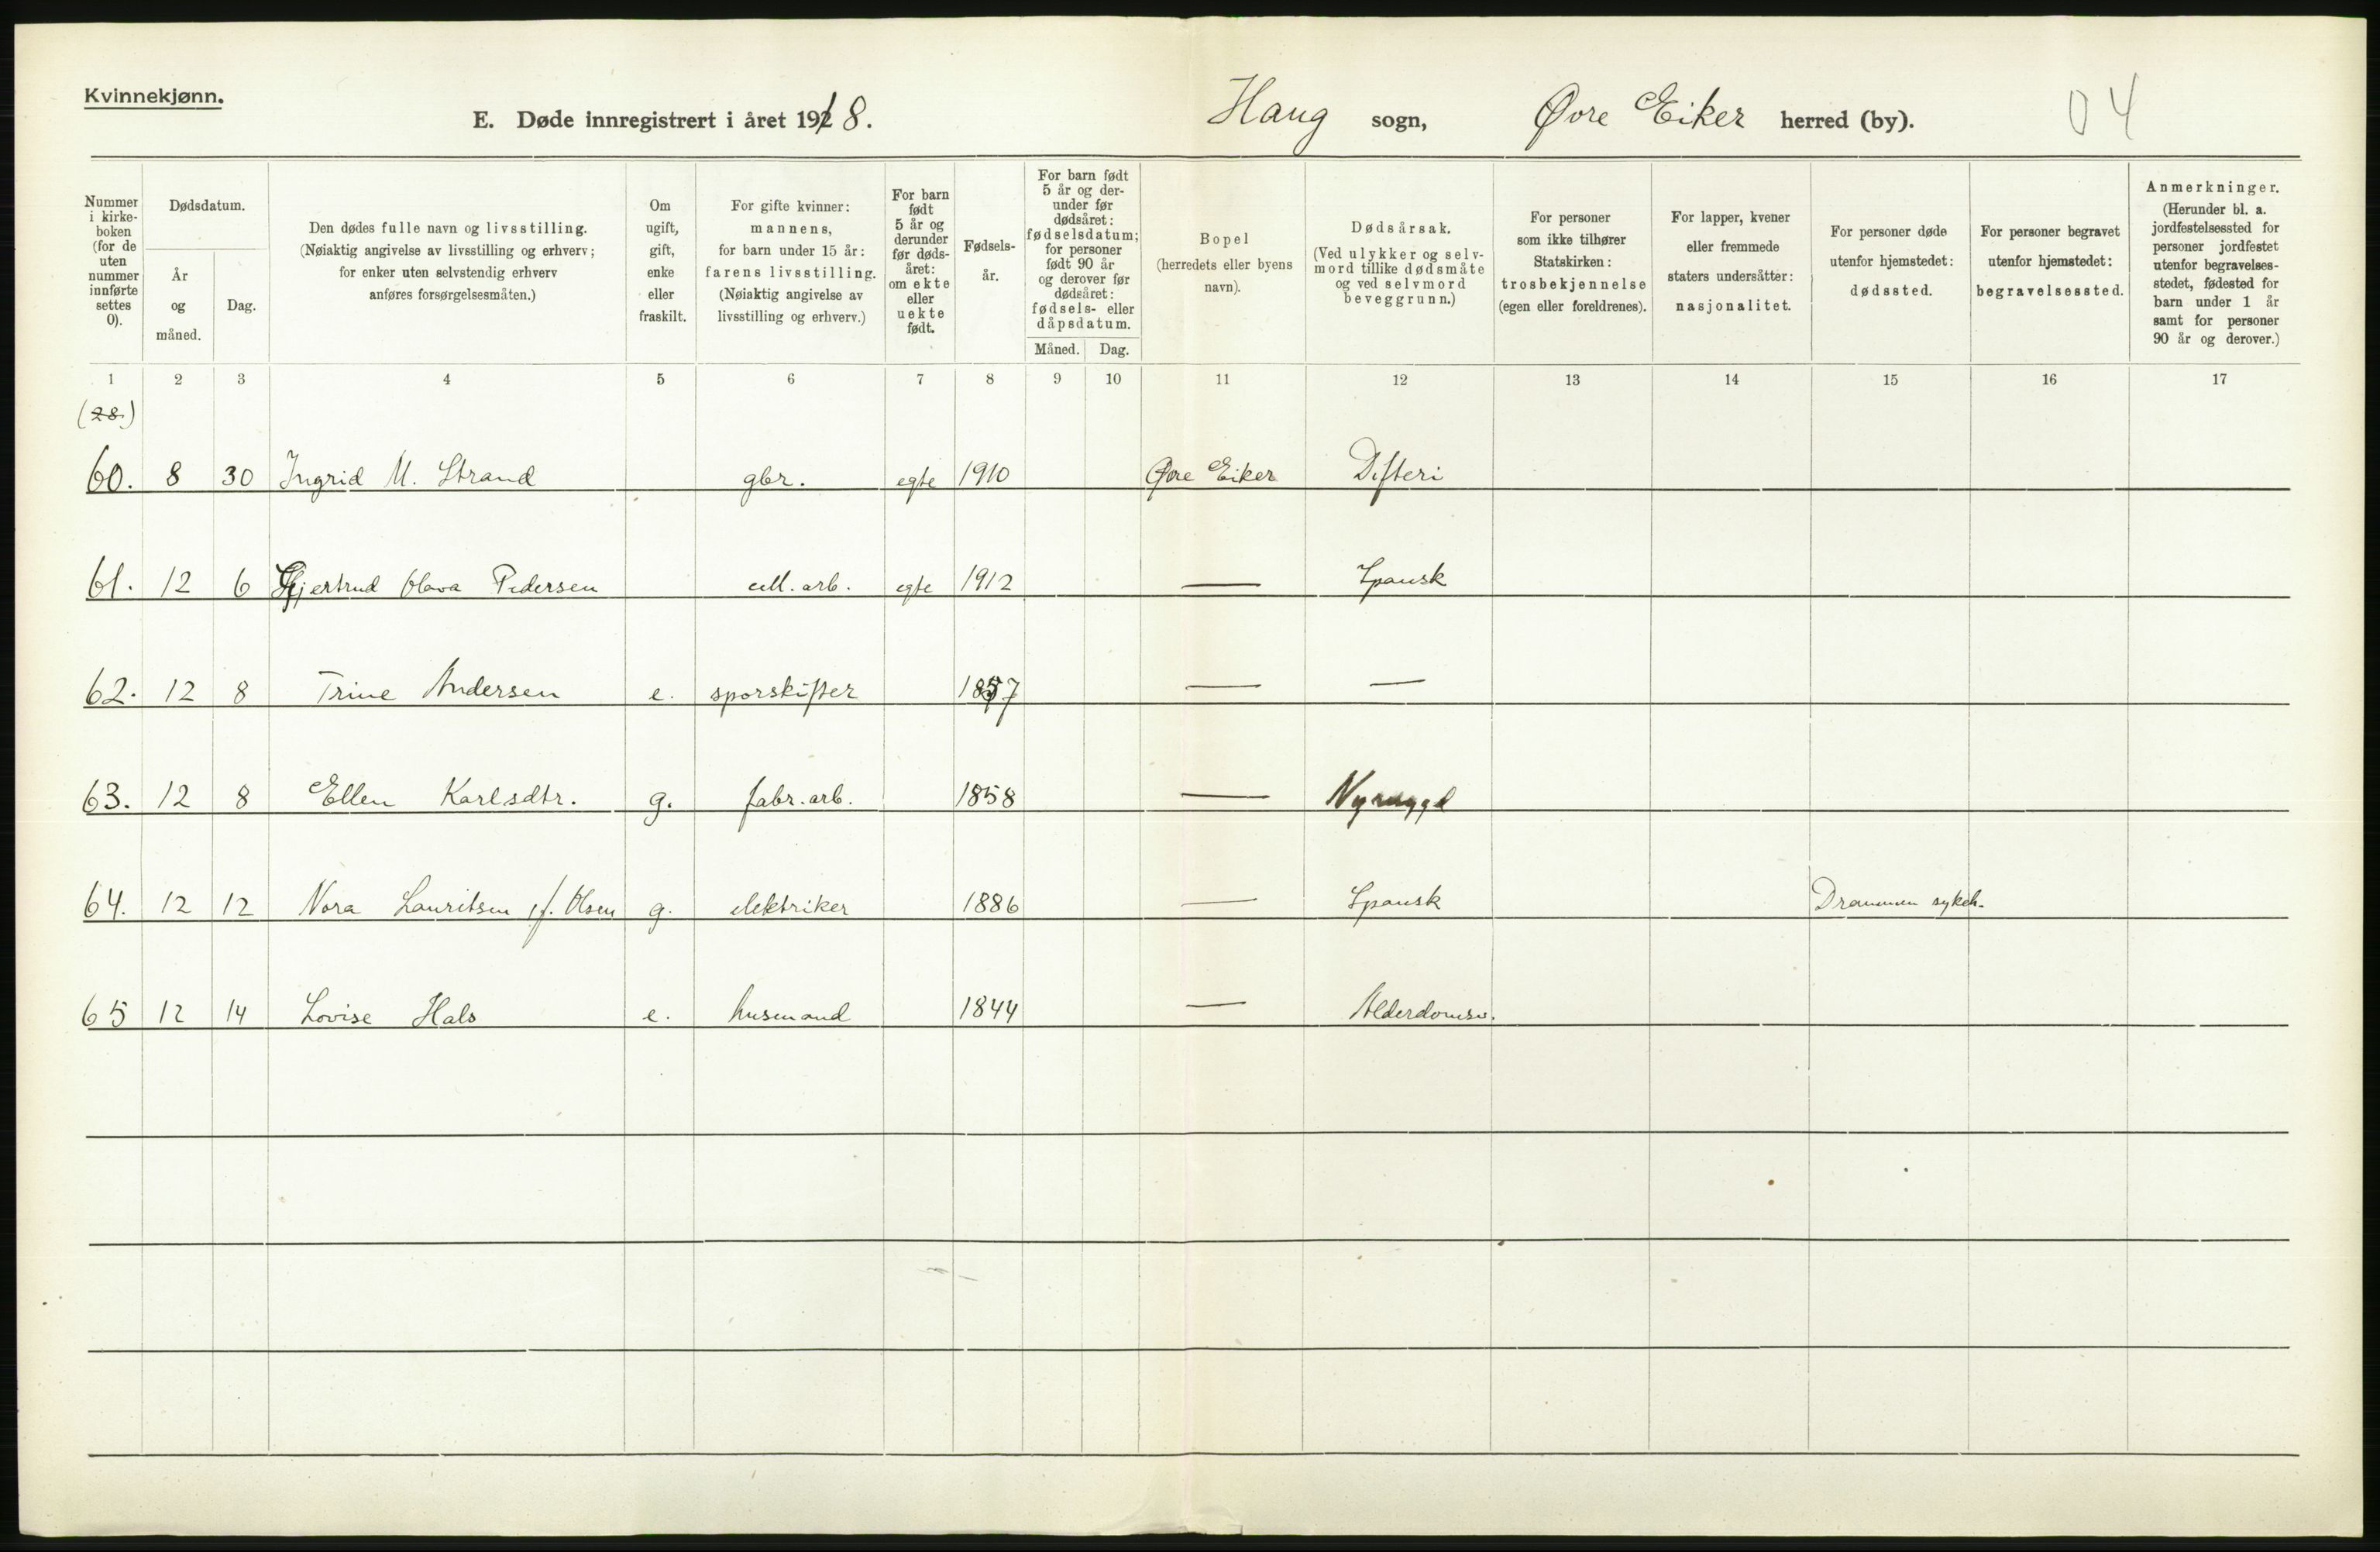 Kvinnekjønn.
E. Døde innregistrert i året 1918.
Haug sogn, Øvre Eiker herred (by).
04
Nummer i kirke-boken (for de uten nummer innførte settes 0).
Dødsdatum.
År og måned.
Dag.
Den dødes fulle navn og livsstilling.
(Nøiaktig angivelse av livsstilling og erhverv;
for enker uten selvstendig erhverv
anføres forsørgelsesmåten.)
Om ugift, gift, enke eller fraskilt.
For gifte kvinner: mannens, for barn under 15 år: farens livsstilling. (Nøiaktig angivelse av livsstilling og erhverv.)
For barn født 5 år og derunder før døds-året: om ekte eller uekte født.
Fødsels-år.
For barn født 5 år og der-under før dødsåret: fødselsdatum; for personer født 90 år og derover før dødsåret: fødsels- eller dåpsdatum.
Måned. Dag.
Bopel (herredets eller byens navn).
Dødsårsak. (Ved ulykker og selv-mord tillike dødsmåte og ved selvmord beveggrunn.)
For personer som ikke tilhører Statskirken: trosbekjennelse (egen eller foreldrenes).
For lapper, kvener eller fremmede staters undersåtter: nasjonalitet.
For personer døde utenfor hjemstedet: dødssted.
For personer begravet utenfor hjemstedet: begravelsessted.
Anmerkninger. (Herunder bl. a. jordfestelsessted for personer jordfestet utenfor begravelses-stedet, fødested for barn under 1 år samt for personer 90 år og derover.)
1 2 3 4 5 6 7 8 9 10 11 12 13 14 15 16 17
(28.)
60. 8 30 Ingrid M. Strand gbr. egte 1910 Øvre Eiker Difteri
61. 12 6 Gjertrud Olava Pedersen cell. arb. egte 1912 — Spansk
62. 12 8 Trine Andersen e. sporskifter 1857 — —
63. 12 8 Ellen Karlsdtr. g. fabr. arb. 1858 —
64. 12 12 Nora Lauritsen f. Olsen g. elektriker 1886 — Spansk Drammen sykeh.
65 12 14 Lovise Hals e. husmand 1844 — Alderdomsv.